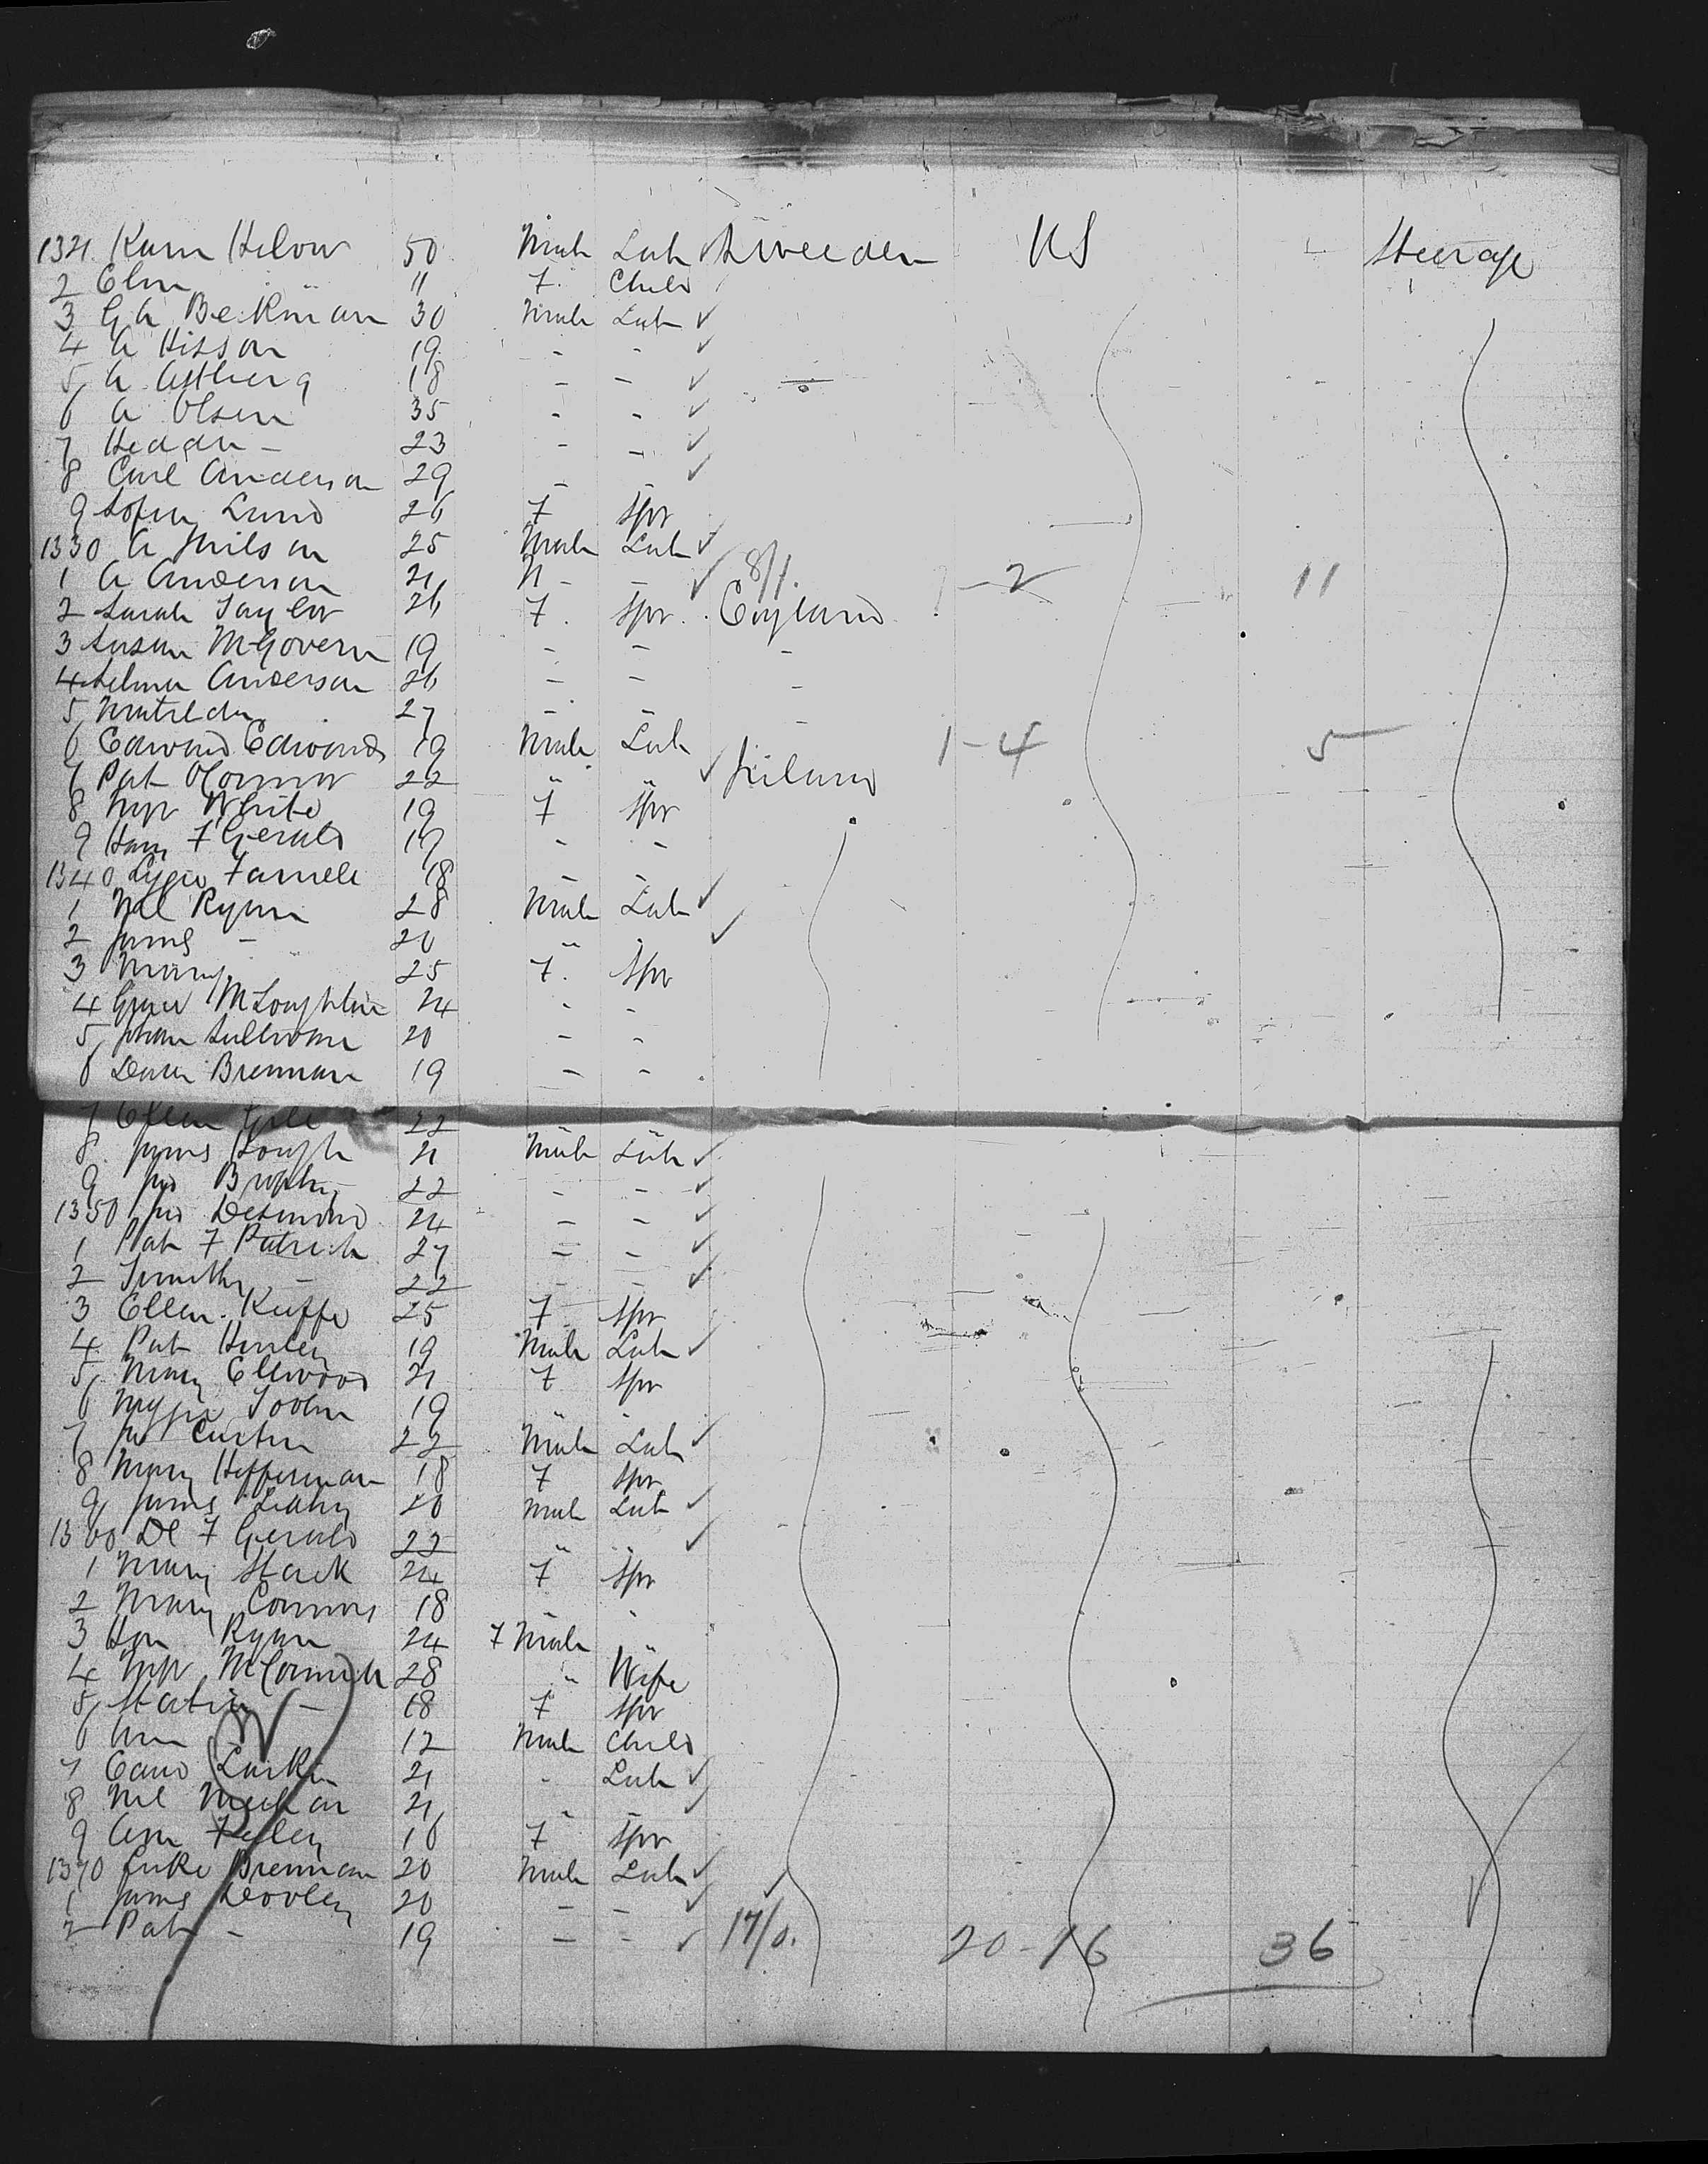 1321. Karn Hilow 50 Male Lab ✓ Sweeden US Steerage
2 Elin 11 F. Child
3 G A Beckman 30 Male Lab ✓
4 A Hisson 19 - - ✓
5 A Astberg 18 - - ✓
6 A Olsen 35 - - ✓
7 - 23 - - ✓
8 Carl Anderson 29 - - ✓
9 Sofia Lund 26 F Spr
1330 A Nilson 25 Male Lab ✓
1 A Anderson 21 M - - ✓ 8/1. 1-2 11
2 Sarah Taylor 26 F. Spr. England
3 Susan McGovern 19 - - -
4 Selma Anderson 26 - - -
5 Matilda 27 - - -
6 Edward Edwards 19 Male Lab 1-4 5
7 Pat OConnor 22 " " ✓ Ireland
8 Mgr White 19 F Spr
9 Han F Gerald 19 - -
1340 Lizzie Farrell 18 - -
1 Ml Ryan 28 Male Lab ✓
2 James - 20 " " ✓
3 Mary 25 F. Spr
4 Grace McLoughlin 24 - -
5 Johan Sullivan 20 - -
6 Brennan 19 - -
7 Ellen Gill 22
8 James Hough 21 Male Lab ✓
9 Jno Brophy 22 - - ✓
1350 Jno Desmond 24 - - ✓
1 Pat F Patrick 27 - - ✓
2 Timothy - 22 - - ✓
3 Ellen Keeffe 25 F Spr
4 Pat Hurley 19 Male Lab ✓
5 Mary Ellwood 21 F Spr
6 19 - -
7 Jno Curtin 22 Male Lab ✓
8 Mary Heffernan 18 F Spr
9 James Leahy 20 Male Lab ✓
1360 Dl F Gerald 22 " " ✓
1 Mary Stack 24 F Spr
2 Mary Connors 18 - -
3 Hon Ryan 24 F Male
4 Mgr McCormick 28 " Wife
5 Statia - 18 F Spr
6 12 Male Child
7 Larkin 21 - Lab ✓
8 Ml Meehan 21 - - ✓
9 Ann 16 F Spr
1370 Luke Brennan 20 Male Lab ✓
1 James Dooley 20 - - ✓
2 Pat - 19 - - ✓ 17/0. 20-16 36